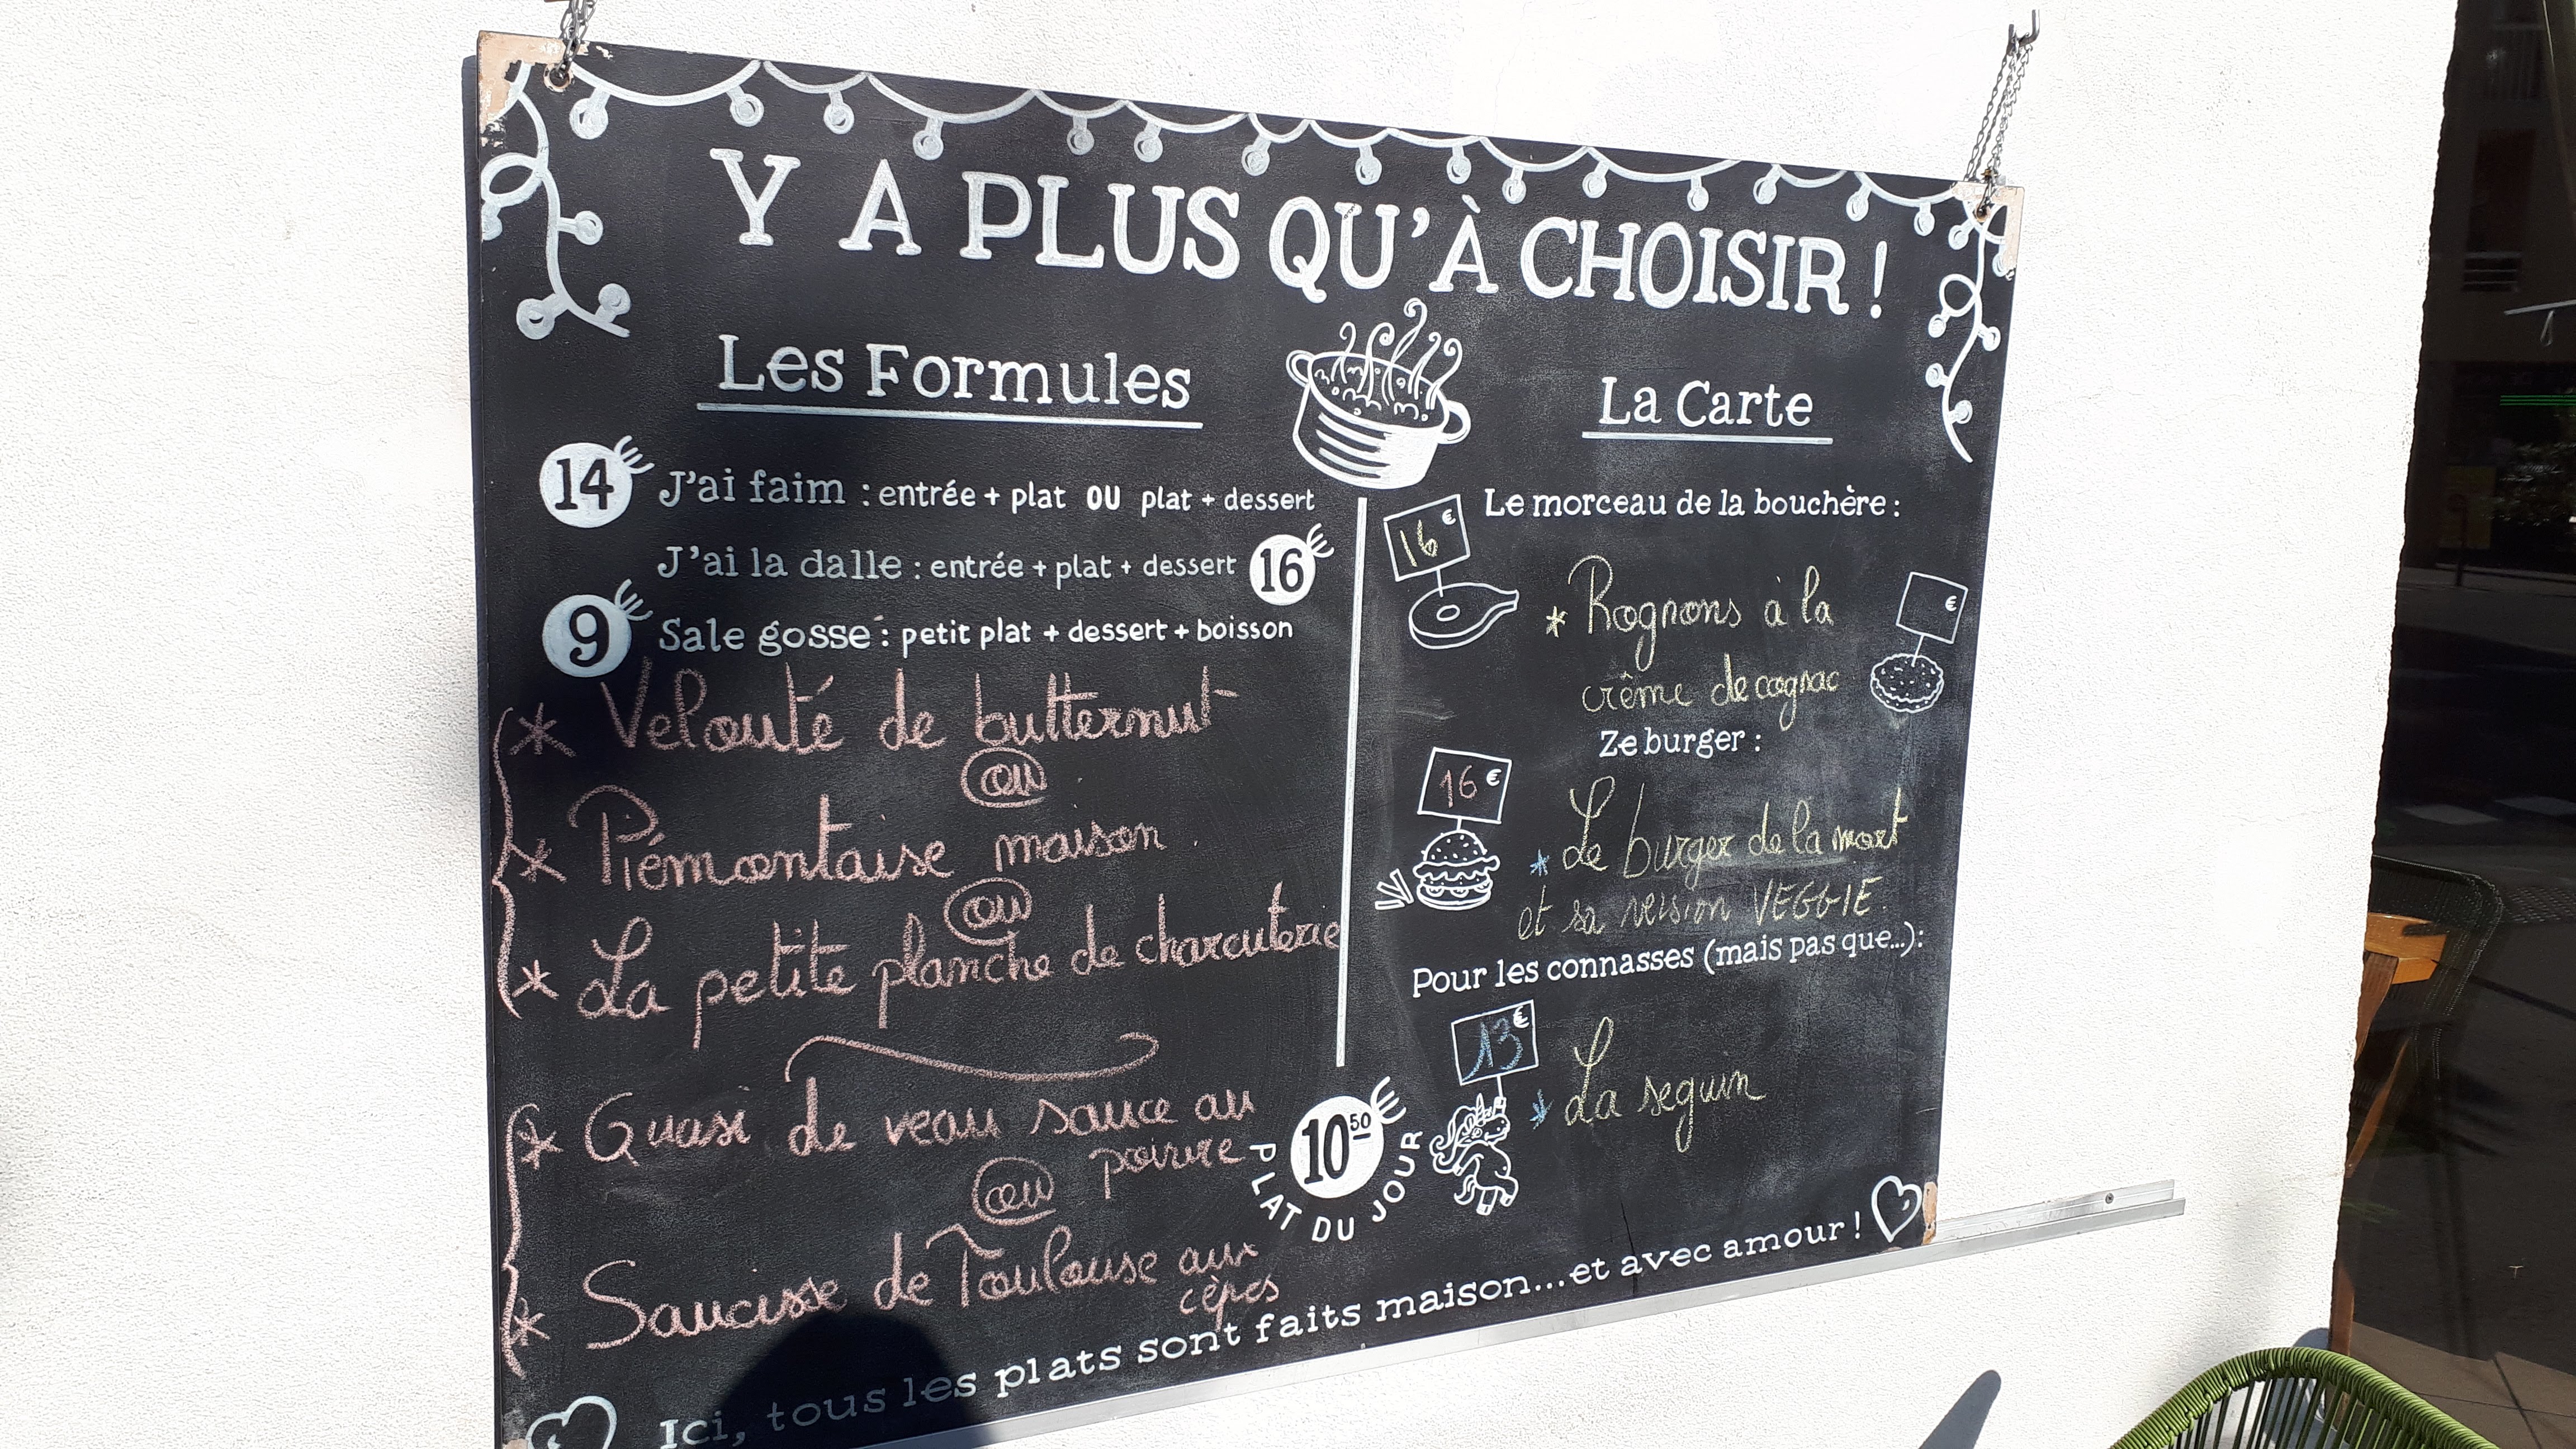 Y A PLUS QU'À CHOISIR !
Les Formules
14 € J'ai faim : entrée + plat OU plat + dessert
J'ai la dalle : entrée + plat + dessert 16 €
9 € Sale gosse : petit plat + dessert + boisson
* Velouté de butternut
ou
* Piémontaise maison
ou
* La petite planche de charcuterie
* Quasi de veau sauce au
poivre
ou
* Saucisse de Toulouse aux
cèpes
10 50 €
PLAT DU JOUR
La Carte
Le morceau de la bouchère :
16 €
* Rognons à la
crême de cognac
€
Ze burger :
16 €
* Le burger de la mort
et sa version VEGGIE.
Pour les connasses (mais pas que...) :
13 €
* La seguin
Ici, tous les plats sont faits maison...et avec amour !